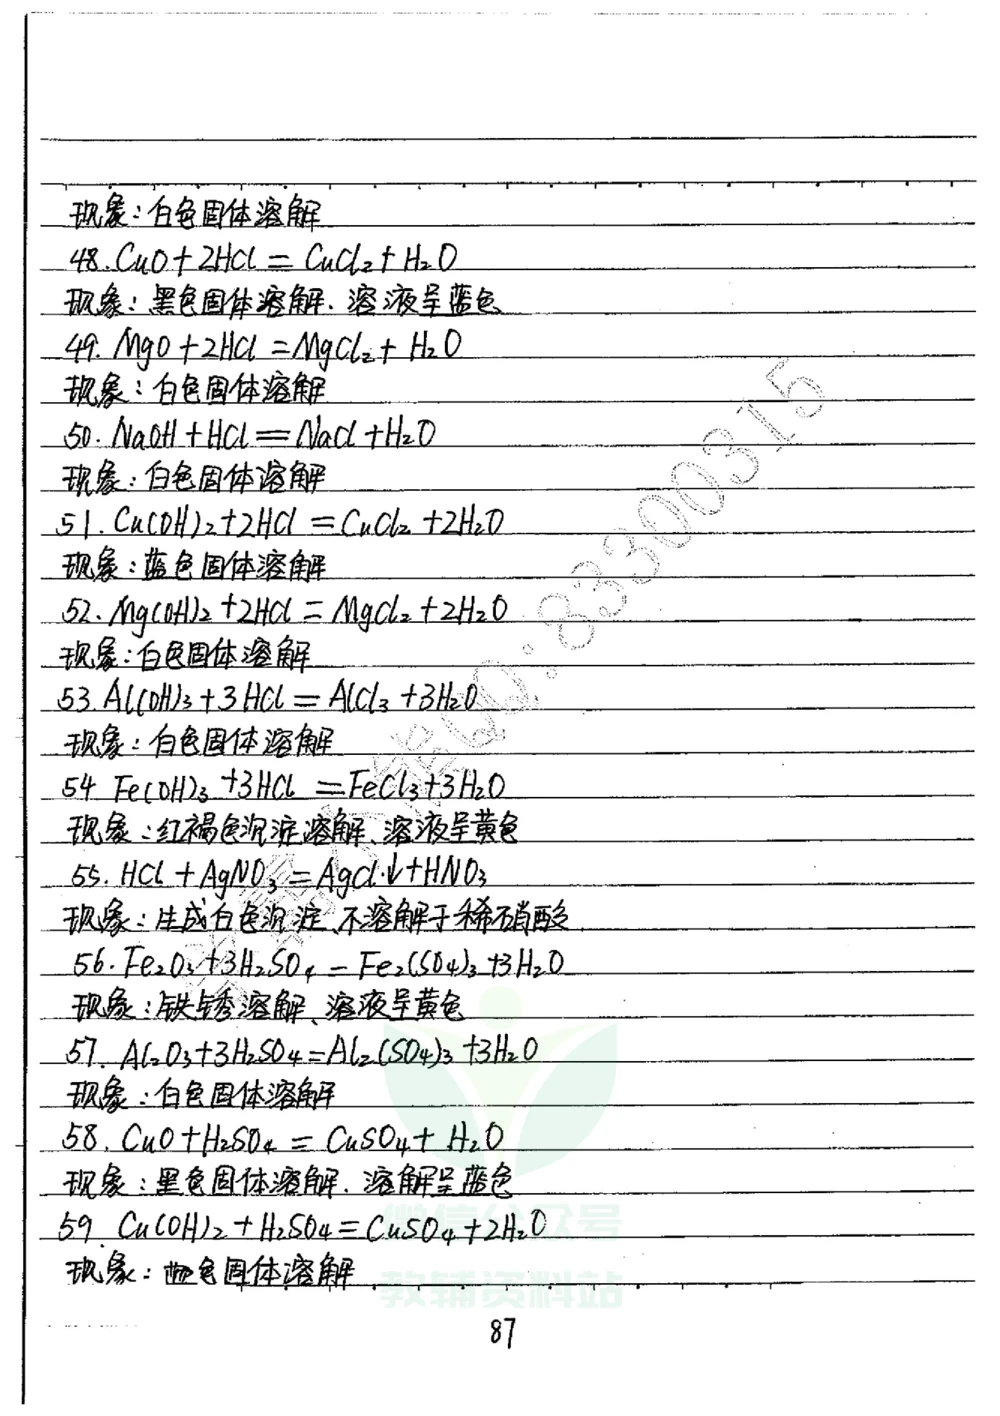 现象：白色固体溶解
48.CuO+2HCl=CuCl₂+H₂O
现象：黑色固体溶解、溶液呈蓝色
49.MgO+2HCl=MgCl₂+H₂O
现象：白色固体溶解
50.NaOH+HCl=NaCl+H₂O
现象：白色固体溶解
51.Cu(OH)₂+2HCl=CuCl₂+2H₂O
现象：蓝色固体溶解
52.Mg(OH)₂+2HCl=MgCl₂+2H₂O
现象：白色固体溶解
53.Al(OH)₃+3HCl=AlCl₃+3H₂O
现象：白色固体溶解
54 Fe(OH)₃+3HCl=FeCl₃+3H₂O
现象：红褐色沉淀溶解、溶液呈黄色
55.HCl+AgNO₃=AgCl↓+HNO₃
现象：生成白色沉淀、不溶解于稀硝酸
56.Fe₂O₃+3H₂SO₄=Fe₂(SO₄)₃+3H₂O
现象：铁锈溶解、溶液呈黄色
57.Al₂O₃+3H₂SO₄=Al₂(SO₄)₃+3H₂O
现象：白色固体溶解
58.CuO+H₂SO₄=CuSO₄+H₂O
现象：黑色固体溶解、溶解呈蓝色
59 Cu(OH)₂+H₂SO₄=CuSO₄+2H₂O
现象：色固体溶解
87
QQ:83300315
微信公众号
教辅资料站